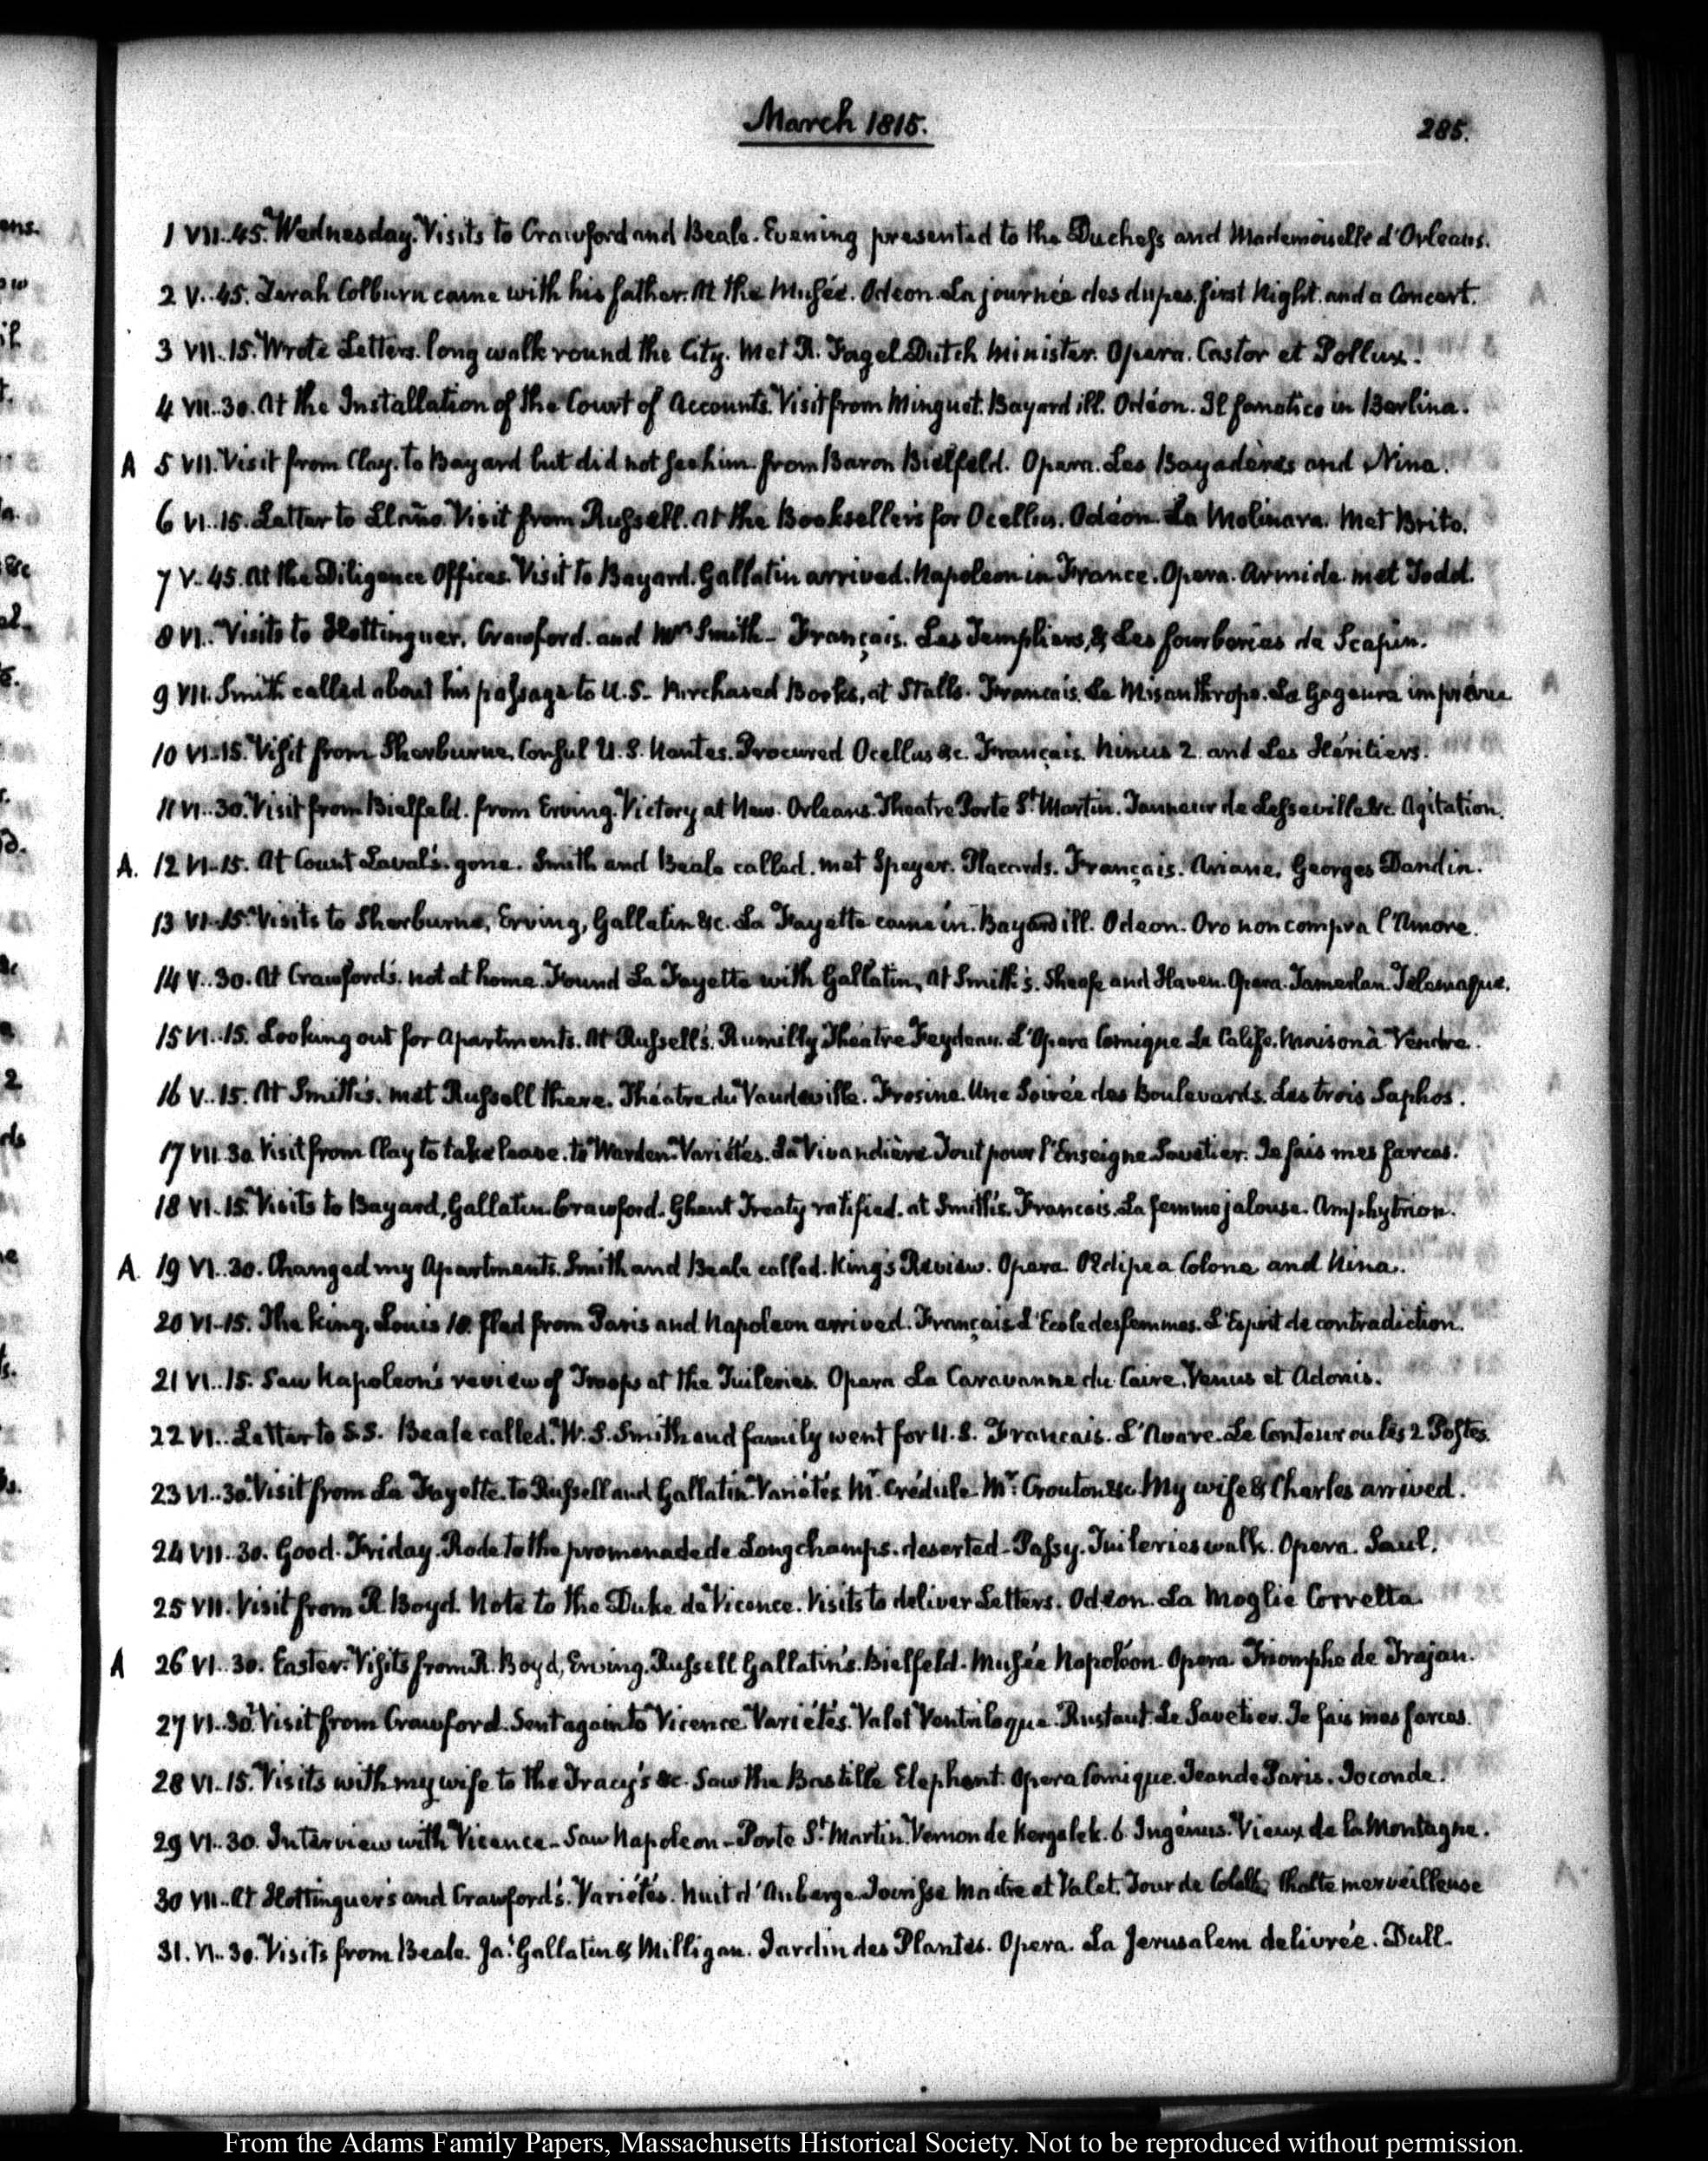 March 1815.
285.
1 VII..45. Wednesday. Visits to Crawford and Beale. Evening presented to the Duchess and Mademoiselle d'Orleans.
2 V..45. Zerah Colburn came with his father. At the Musée. Odeon. La journée des dupes. first Night. and a Concert.
3 VII..15. Wrote Letters. long walk round the City. Met R. Fagel Dutch Minister. Opera. Castor et Pollux.
4 VII..30. At the Installation of the Court of Accounts. Visit from Minguet. Bayard ill. Odéon. Il fanatico in Berlina.
A 5 VII. Visit from Clay. to Bayard but did not see him. from Baron Bielfeld. Opera. Les Bayadères and Nina.
6 VI..15. Letter to Llaño. Visit from Russell. At the Bookseller's for Ocellus. Odéon. La Molinara. Met Brito.
7 V..45. At the Diligence Offices. Visit to Bayard. Gallatin arrived. Napoleon in France. Opera. Armide. met Todd.
8 VI.. Visits to Hottinguer, Crawford. and Mrs Smith - Français. Les Templiers, & Les fourberies de Scapin.
9 VII. Smith called about his passage to U.S. Purchased Books, at Stalls. Francais. Le Misanthrope. La Gageure imprévue
10 VI..15. Visit from Sherburne, Consul U.S. Nantes. Procured Ocellus &c. Français. Ninus 2. and Les Héritiers.
11 VI..30. Visit from Bielfeld. from Erving. Victory at New Orleans. Theatre Porte St Martin. Tanneur de Lesseville &c. Agitation.
A. 12 VI..15. At Count Laval's. gone. Smith and Beale called. met Speyer. Placards. Français. Ariane, Georges Dandin.
13 VI..15. Visits to Sherburne, Erving, Gallatin &c. La Fayette came in. Bayard ill. Odeon. Oro non compra l'Amore.
14 V..30. At Crawford's. not at home. Found La Fayette with Gallatin, At Smith's. Sheafe and Haven. Opera. Tamerlan. Telemaque.
15 VI..15. Looking out for Apartments. At Russell's. Rumilly Théatre Feydeau. L'Opera Comique Le Calife. Maison à Vendre.
16 V..15. At Smith's. met Russell there. Théatre du Vaudeville. Frosine. Une Soirée des Boulevards. Les trois Saphos.
17 VII.30. Visit from Clay to take leave. to Warden. Variétés. La Vivandière Tout pour l'Enseigne Savetier. Je fais mes farces.
18 VI..15. Visits to Bayard, Gallatin. Crawford. Ghent Treaty ratified. at Smith's. Francois. La femme jalouse. Amphytrion.
A. 19 VI..30. Changed my Apartments. Smith and Beale called. King's Review. Opera. Œdipe a Colone and Nina.
20 VI..15. The king, Louis 18. fled from Paris and Napoleon arrived. Français L'Ecole des femmes. L'Esprit de contradiction.
21 VI..15. Saw Napoleon's review of Troops at the Tuileries. Opera La Caravanne du Caire. Venus et Adonis.
22 VI.. Letter to S.S. Beale called. W.S. Smith and family went for U.S. Francais. L'Avare. Le Conteur ou les 2 Postes.
23 VI..30. Visit from La Fayette. to Russell and Gallatin. Variétés. Mr. Crédule Mr. Crouton &c. My wife & Charles arrived.
24 VII..30. Good-Friday. Rode to the promenade de Longchamps. deserted - Passy. Tuileries walk. Opera. Saul.
25 VII. Visit from R. Boyd. Note to the Duke de Vicence. Visits to deliver Letters. Odéon. La Moglie Corretta.
A 26 VI..30. Easter. Visits from R. Boyd, Erving. Russell Gallatin's. Bielfeld. Musée Napoléon. Opera Triomphe de Trajan.
27 VI..30. Visit from Crawford. Sent again to Vicence. Variétés. Valet Ventriloque. Rustaut. Le Savetier. Je fais mes farces.
28 VI..15. Visits with my wife to the Tracy's &c. Saw the Bastille Elephant. Opera Comique. Jean de Paris. Joconde.
29 VI..30. Interview with Vicence - Saw Napoleon - Porte St. Martin. Vernon de Kergalek. 6 Ingénus. Vieux de la Montagne.
30 VII.. At Hottinguer's and Crawford's. Variétés. Nuit d'Auberge. Jocrisse Maitre et Valet. Tour de Chatte merveilleuse
31. VI..30. Visits from Beale. Ja: Gallatin & Milligan. Jardin des Plantes. Opera. La Jerusalem delivrée. Dull.
From the Adams Family Papers, Massachusetts Historical Society. Not to be reproduced without permission.